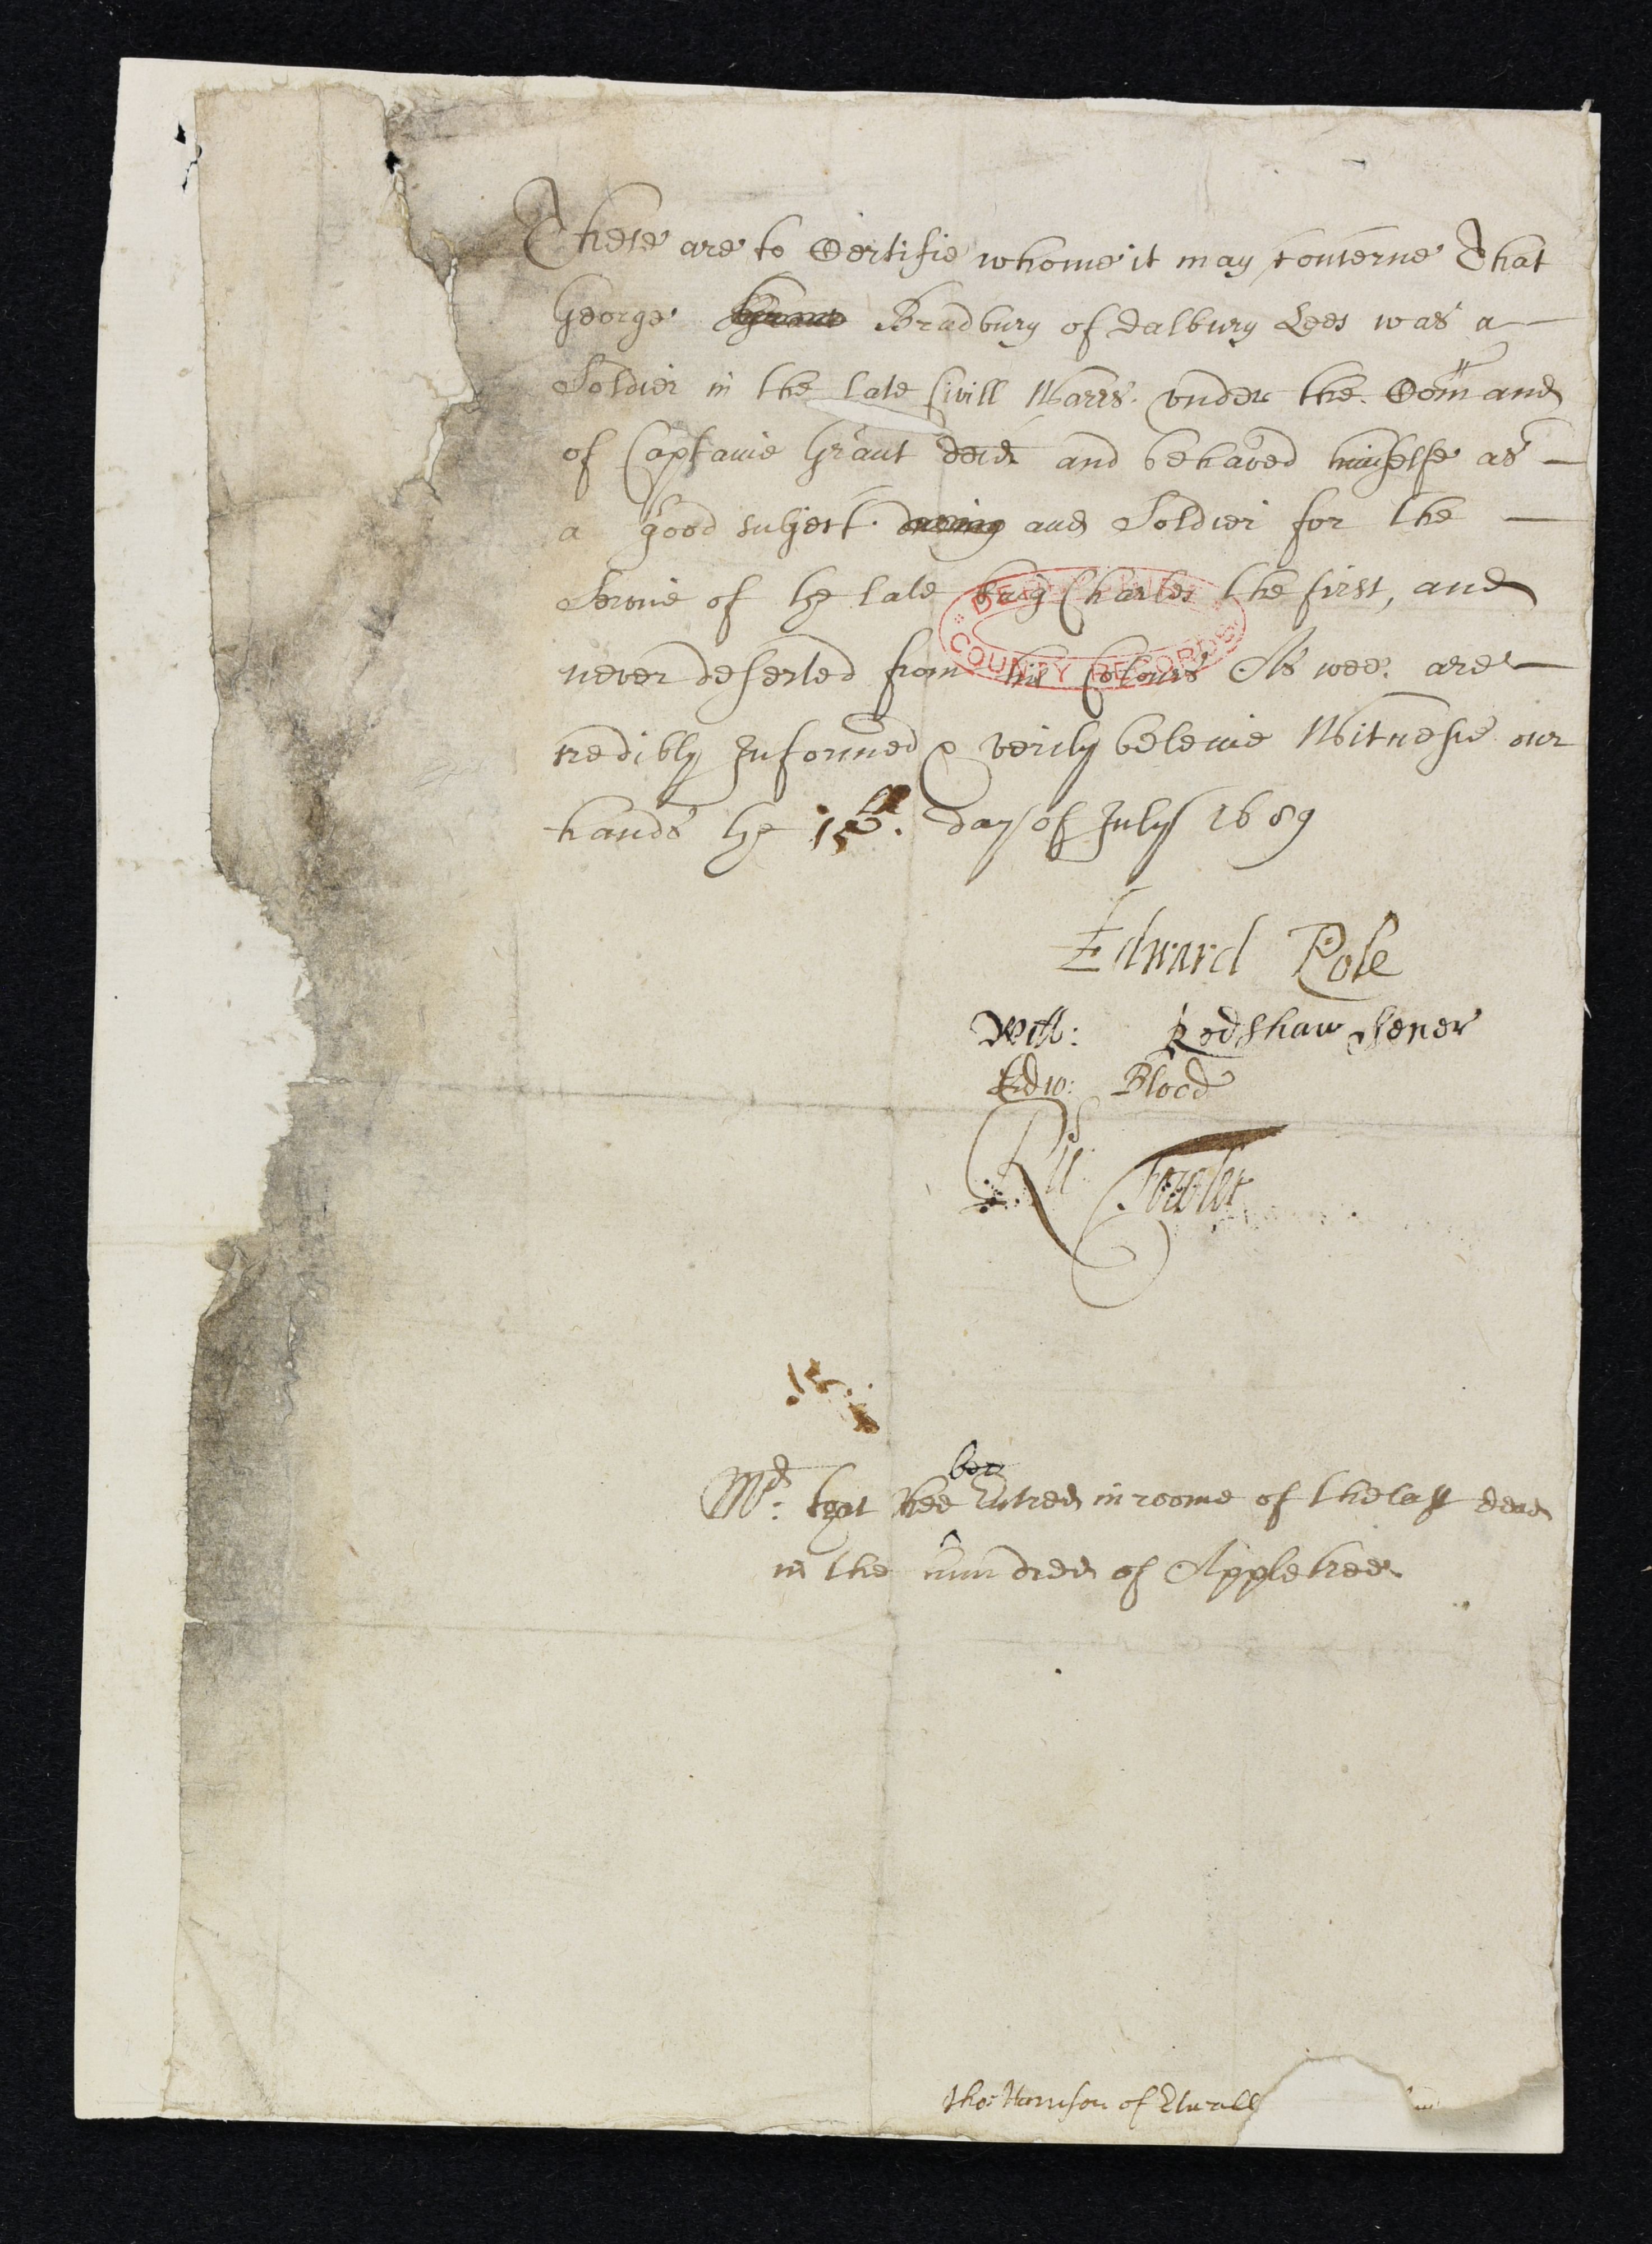 These are to Certifie whome it may concerne That
George Bradbury of Dalbury Lees was a
Soldier in the late Civill Warrs. vnder the Com̄and
of Captaine Grant decd and behaved himselfe as
a good subject and Soldier for the
Service of ye late King Charles the first, and
never deserted from his Colours As wee are
credibly Informed & verily beleive Witnesse our
hands ye 15th. day of July 1689
DERBYSHIRE COUNTY RECORDS
Edward Pole
Will: Redshaw Sener
Edw: Blood
Ric: Fowler
15
bee
Md. that hee Entred in roome of the last dead
in the hundred of Appletree
Tho: Harrison of Etwall